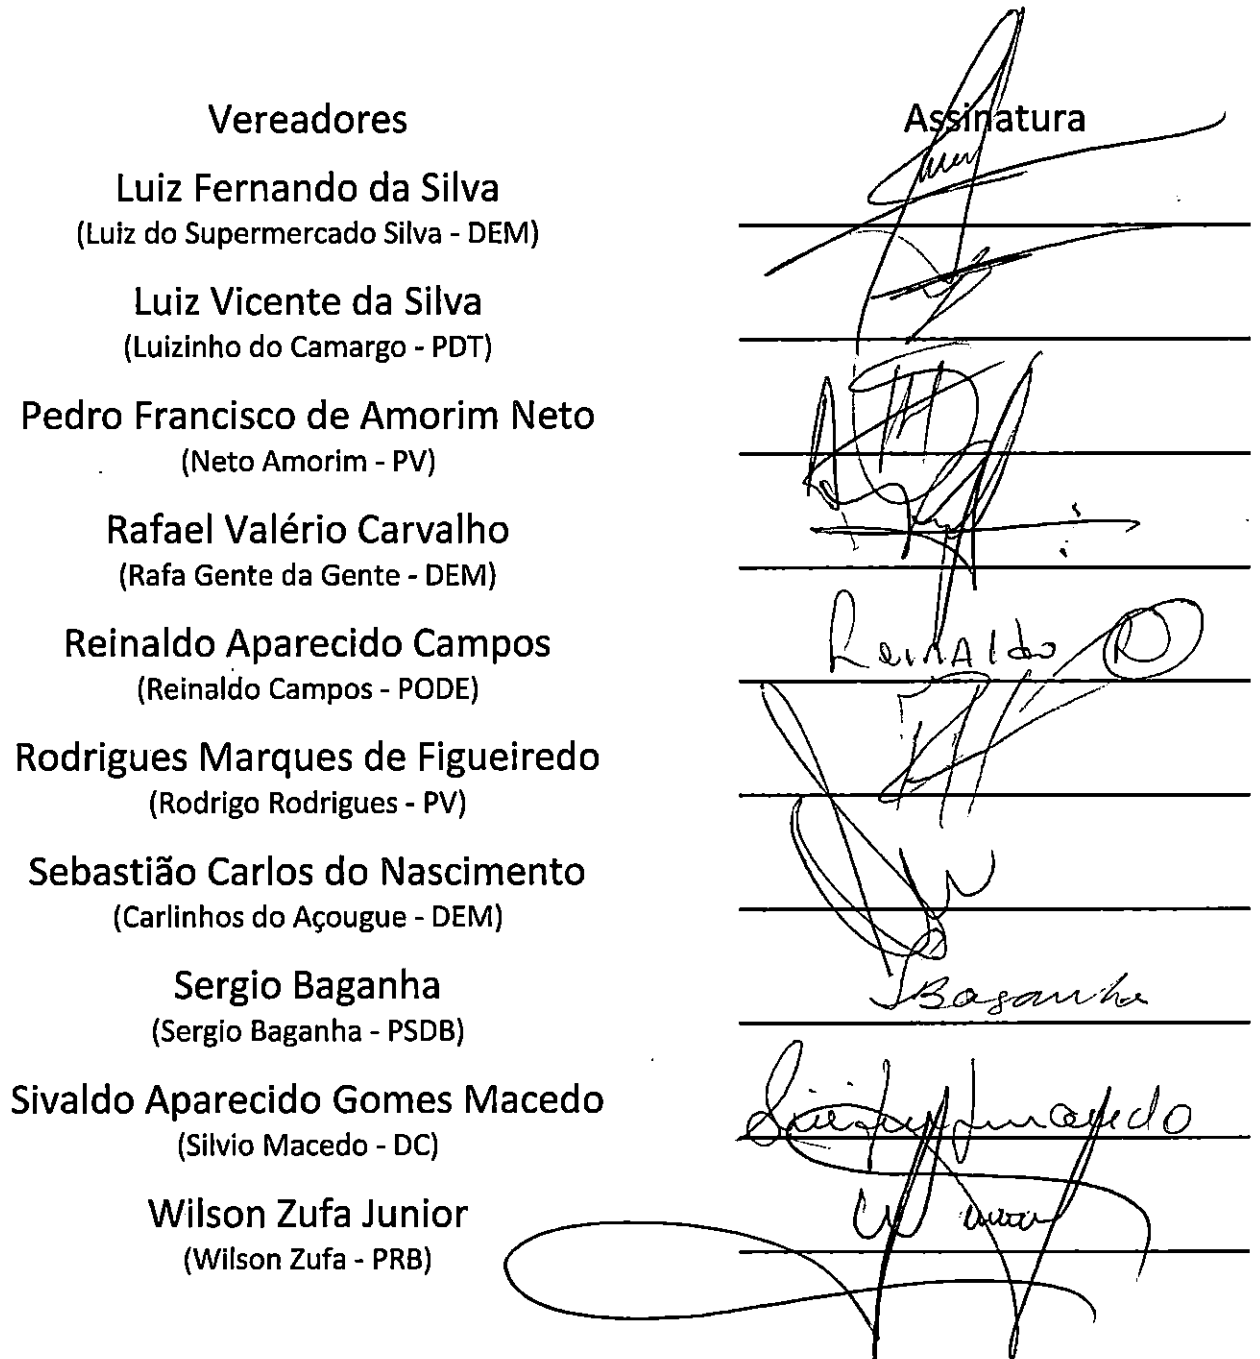 Vereadores Assinatura
Luiz Fernando da Silva
(Luiz do Supermercado Silva - DEM)
Luiz Vicente da Silva
(Luizinho do Camargo - PDT)
Pedro Francisco de Amorim Neto
(Neto Amorim - PV)
Rafael Valério Carvalho
(Rafa Gente da Gente - DEM)
Reinaldo Aparecido Campos Reinaldo
(Reinaldo Campos - PODE)
Rodrigues Marques de Figueiredo
(Rodrigo Rodrigues - PV)
Sebastião Carlos do Nascimento
(Carlinhos do Açougue - DEM)
Sergio Baganha Baganha
(Sergio Baganha - PSDB)
Sivaldo Aparecido Gomes Macedo
(Silvio Macedo - DC)
Wilson Zufa Junior
(Wilson Zufa - PRB)